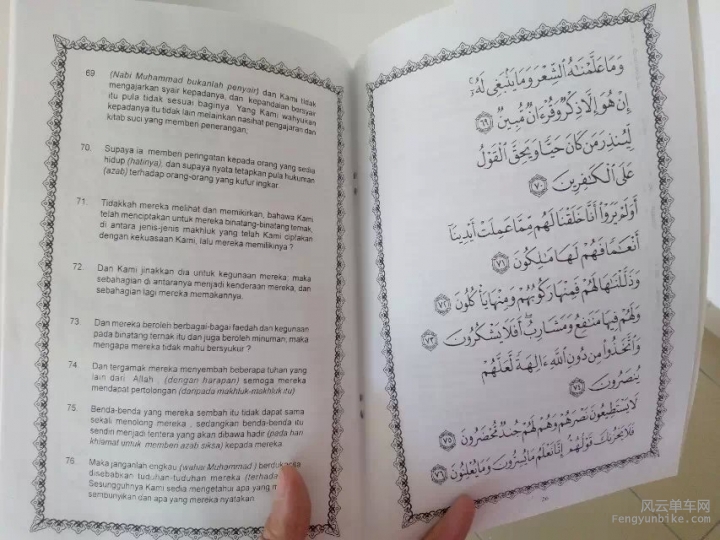 69 (Nabi Muhammad bukanlah penyair) dan Kami tidak
mengajarkan syair kepadanya, dan kepandaian bersyair
itu pula tidak sesuai baginya. Yang Kami wahyukan
kepadanya itu tidak lain melainkan nasihat pengajaran dan
kitab suci yang memberi penerangan;
70. Supaya ia memberi peringatan kepada orang yang sedia
hidup (hatinya), dan supaya nyata tetapkan pula hukuman
(azab) terhadap orang-orang yang kufur ingkar.
71. Tidakkah mereka melihat dan memikirkan, bahawa Kami
telah menciptakan untuk mereka binatang-binatang ternak,
di antara jenis-jenis makhluk yang telah Kami ciptakan
dengan kekuasaan Kami, lalu mereka memilikinya ?
72. Dan Kami jinakkan dia untuk kegunaan mereka; maka
sebahagian di antaranya menjadi kenderaan mereka, dan
sebahagian lagi mereka memakannya.
73 Dan mereka beroleh berbagai-bagai faedah dan kegunaan
pada binatang ternak itu dan juga beroleh minuman; maka
mengapa mereka tidak mahu bersyukur ?
74. Dan tergamak mereka menyembah beberapa tuhan yang
lain dari Allah, (dengan harapan) semoga mereka
mendapat pertolongan (daripada makhluk-makhluk itu)
75. Benda-benda yang mereka sembah itu tidak dapat sama
sekali menolong mereka , sedangkan benda-benda itu
sendiri menjadi tentera yang akan dibawa hadir (pada hari
khiamat untuk memberi azab siksa) kepada mereka.
76. Maka janganlah engkau (wahai Muhammad ) berdukacita
disebabkan tuduhan-tuduhan mereka (terhadap
Sesungguhnya Kami sedia mengetahui apa yang
sembunyikan dan apa yang mereka nyatakan.
وَمَا عَلَّمْنَاهُ الشِّعْرَ وَمَا يَنْبَغِي لَهُ
إِنْ هُوَ إِلَّا ذِكْرٌ وَقُرْءَانٌ مُبِينٌ ٦٩
لِيُنْذِرَ مَنْ كَانَ حَيًّا وَيَحِقَّ الْقَوْلُ
عَلَى الْكَافِرِينَ ٧٠
أَوَلَمْ يَرَوْا أَنَّا خَلَقْنَا لَهُمْ مِمَّا عَمِلَتْ أَيْدِينَا
أَنْعَامًا فَهُمْ لَهَا مَالِكُونَ ٧١
وَذَلَّلْنَاهَا لَهُمْ فَمِنْهَا رَكُوبُهُمْ وَمِنْهَا يَأْكُلُونَ ٧٢
وَلَهُمْ فِيهَا مَنَافِعُ وَمَشَارِبُ أَفَلَا يَشْكُرُونَ ٧٣
وَاتَّخَذُوا مِنْ دُونِ اللَّهِ ءَالِهَةً لَعَلَّهُمْ
يُنْصَرُونَ ٧٤
لَا يَسْتَطِيعُونَ نَصْرَهُمْ وَهُمْ لَهُمْ جُنْدٌ مُحْضَرُونَ ٧٥
فَلَا يَحْزُنْكَ قَوْلُهُمْ إِنَّا نَعْلَمُ مَا يُسِرُّونَ وَمَا يُعْلِنُونَ ٧٦
风云单车网
Fengyunbike.com